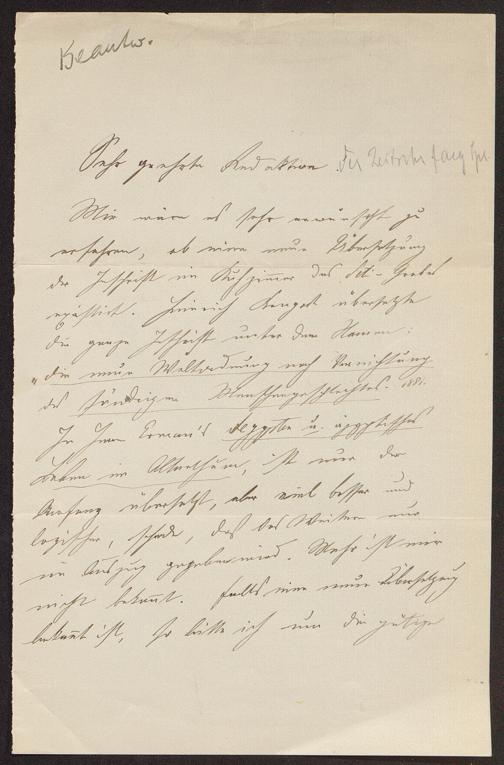 Beantw.
Sehr geehrte Redaktion der Zeitschr. f aeg Spr
Mir wäre es sehr erwünscht zu
erfahren, ob eine neue Übersetzung
der Inschrift im Kuhzimmer des Seti-Grabes
existirt. Heinrich Brugsch übersetzte
die ganze Inschrift unter dem Namen:
"die neue Weltordnung nach Vernichtung
des sündigen Menschengeschlechtes. 1881.
In Erman's Aegypten u. aegyptisches
Leben im Alterthum, ist nur der
Anfang übersetzt, aber viel besser und
logischer, schade, daß das Weitere nur
im Auszug gegeben wird. Mehr ist mir
nicht bekannt. Falls eine neue Übersetzung
bekannt ist, so bitte ich um die gütige